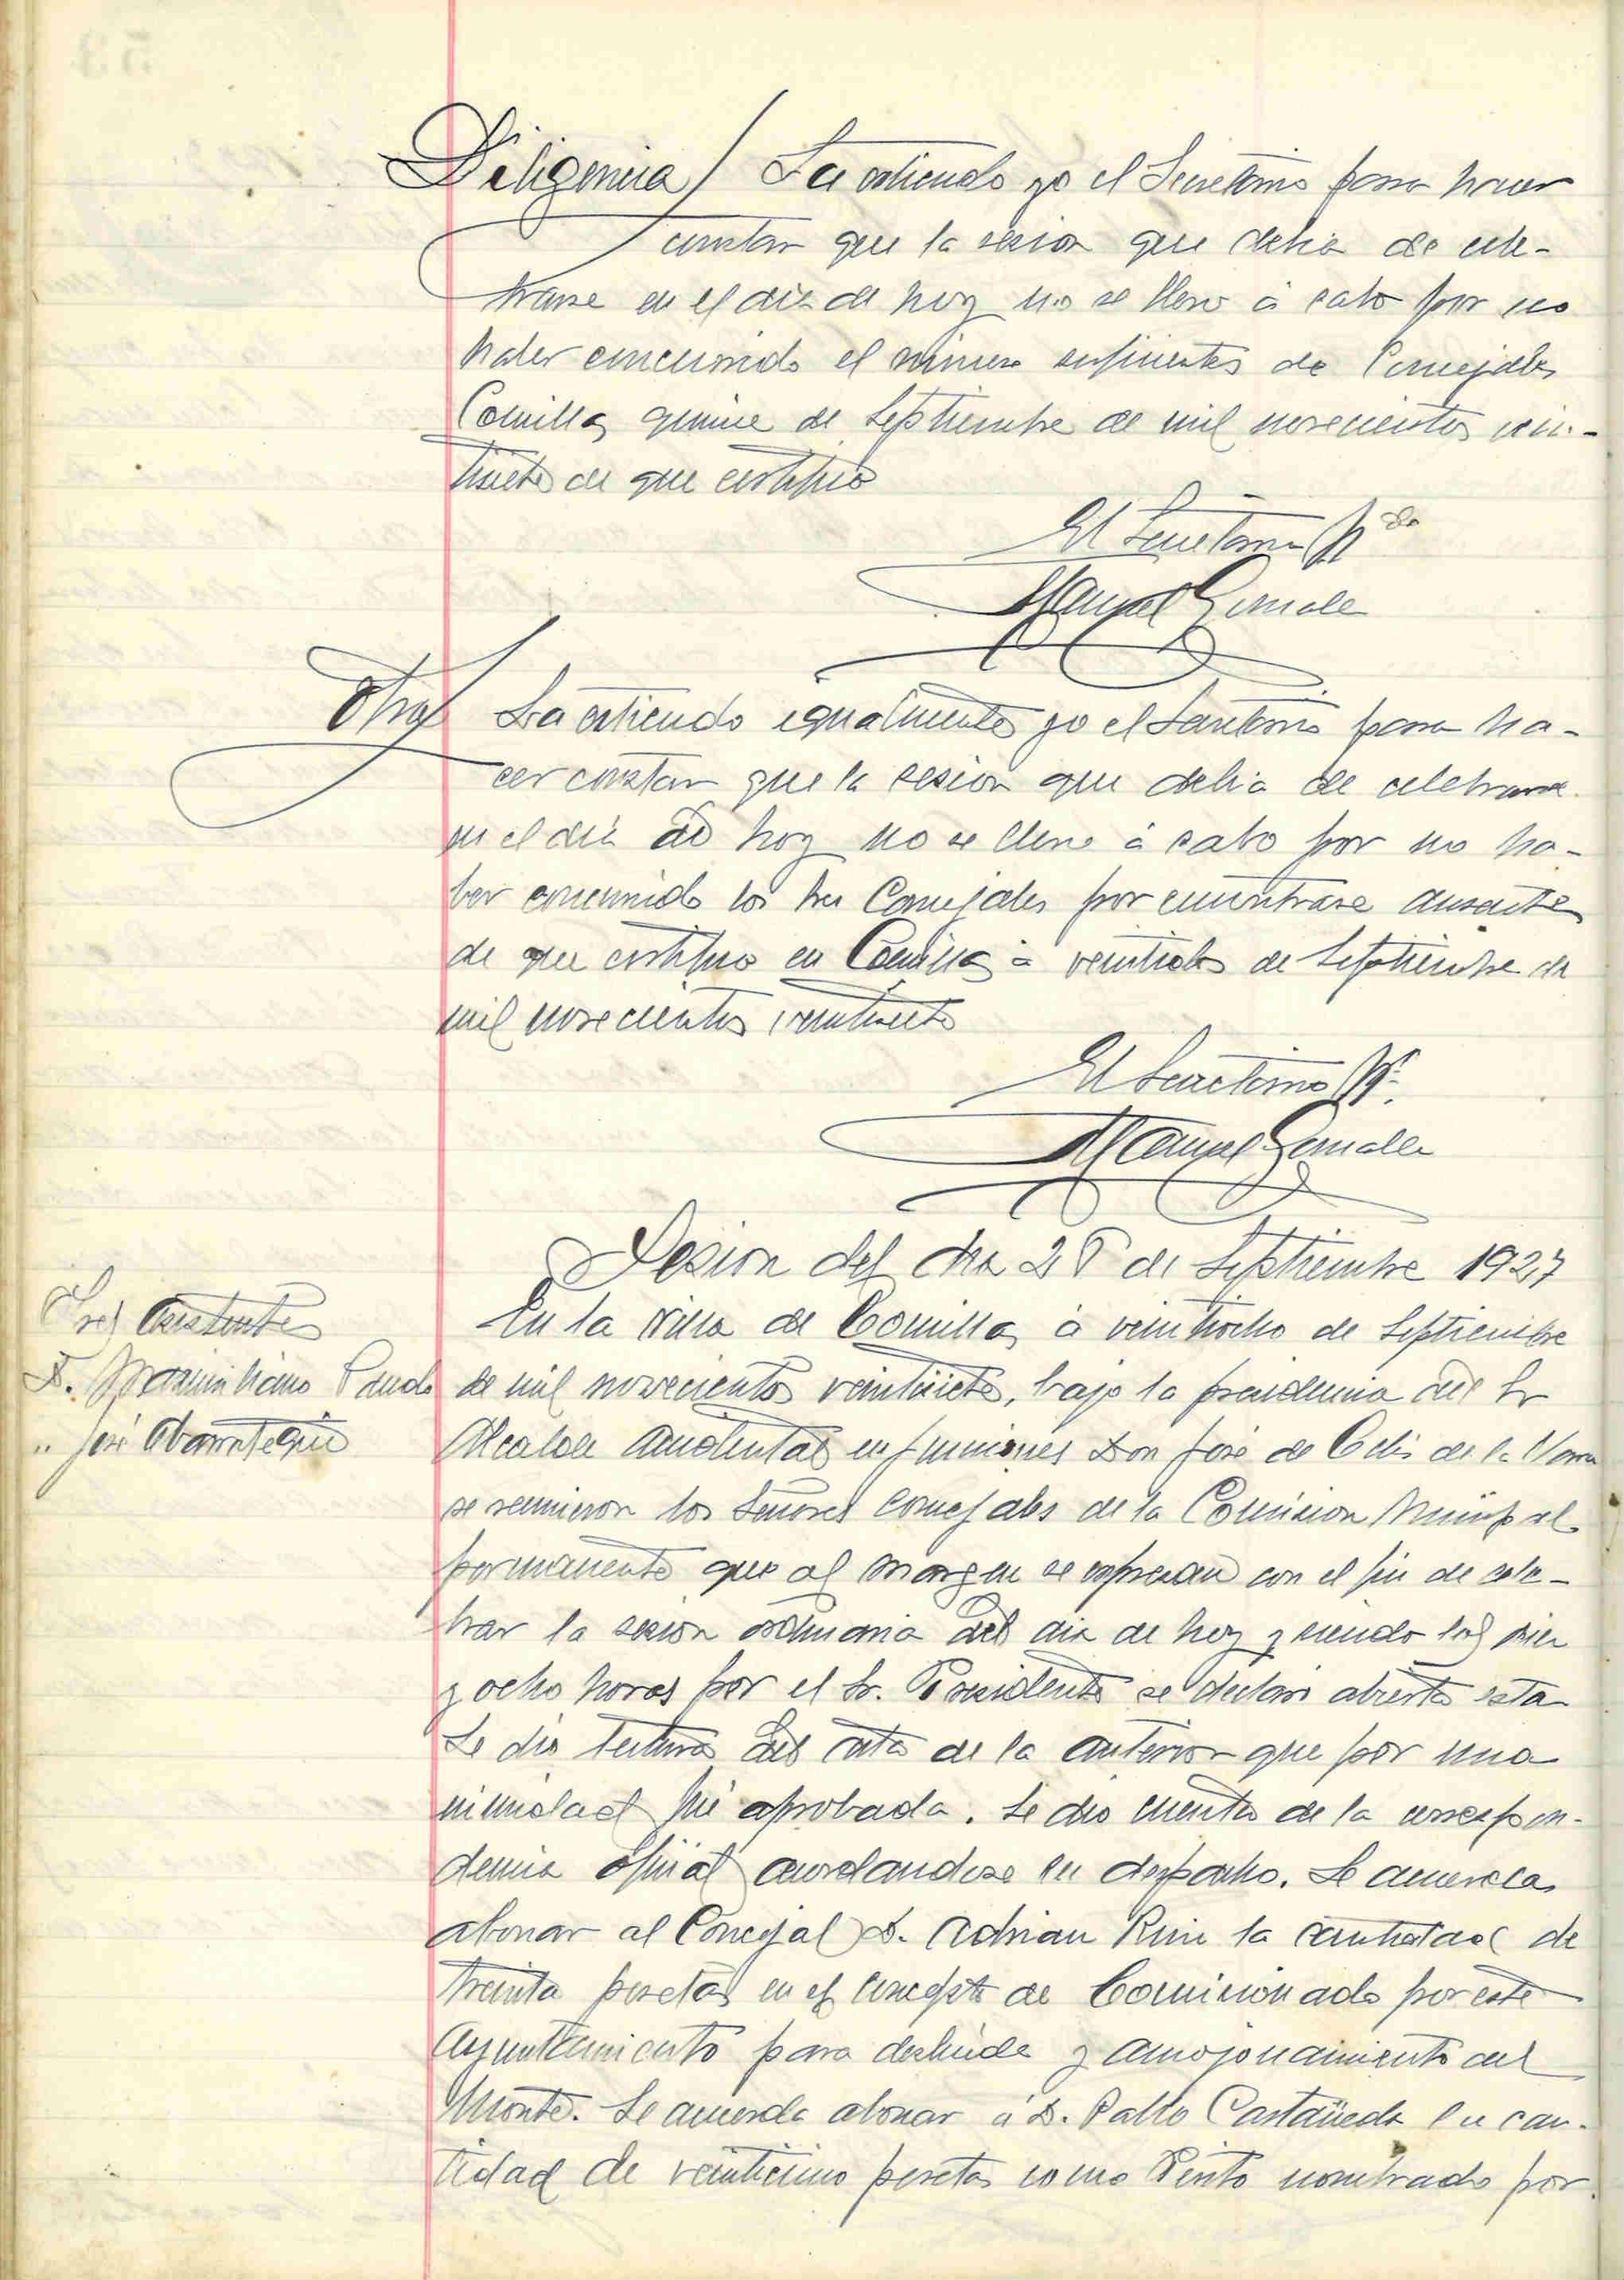 Diligencia / La extiendo yo el Secretario para hacer
constar que la sesion que debia de cele-
brarse en el dia de hoy no se llevo á cabo por no
haber concurrido el número suficientes de Concejales
Comillas quince de Septiembre de mil novecientos vein-
tisiete de que certifico
El Secretario
Manuel Gonzalez
Otra / La extiendo igualmente yo el Secretario para ha-
cer constar que la sesion que debia de celebrarse
en el dia de hoy no se llevo á cabo por no ha-
ber concurrido los Concejales por encontrarse ausentes
de que certifico en Comillas á de Septiembre de
mil novecientos veintisiete
El Secretario
Manuel Gonzalez
Sesion del dia 28 de Septiembre 1927
Sres Asistentes
D. Maximiliano Pando
" José
En la Villa de Comillas á veintiocho de Septiembre
de mil novecientos veintisiete, bajo la presidencia del Sr
Alcalde accidental en funciones Don José de Celis de la
se reunieron los Señores Concejales de la Comision Municipal
permanente que al margen se expresan con el fin de cele-
brar la sesion ordinaria del dia de hoy y siendo las diez
y ocho horas por el Sr. Presidente se declaró abierta esta
Se dio lectura del acta de la anterior que por una
nimidad fué aprobada. Se dio cuenta de la correspon-
dencia oficial acordandose su despacho. Se acuerda
abonar al Concejal D. Adrian Ruiz la cantidad de
treinta pesetas en el concepto de Comisionado por este
Ayuntamiento para deslinde y amojonamiento del
Monte. Se acuerda abonar á D. Pablo Castañeda la can-
tidad de veinticinco pesetas como Perito nombrado por